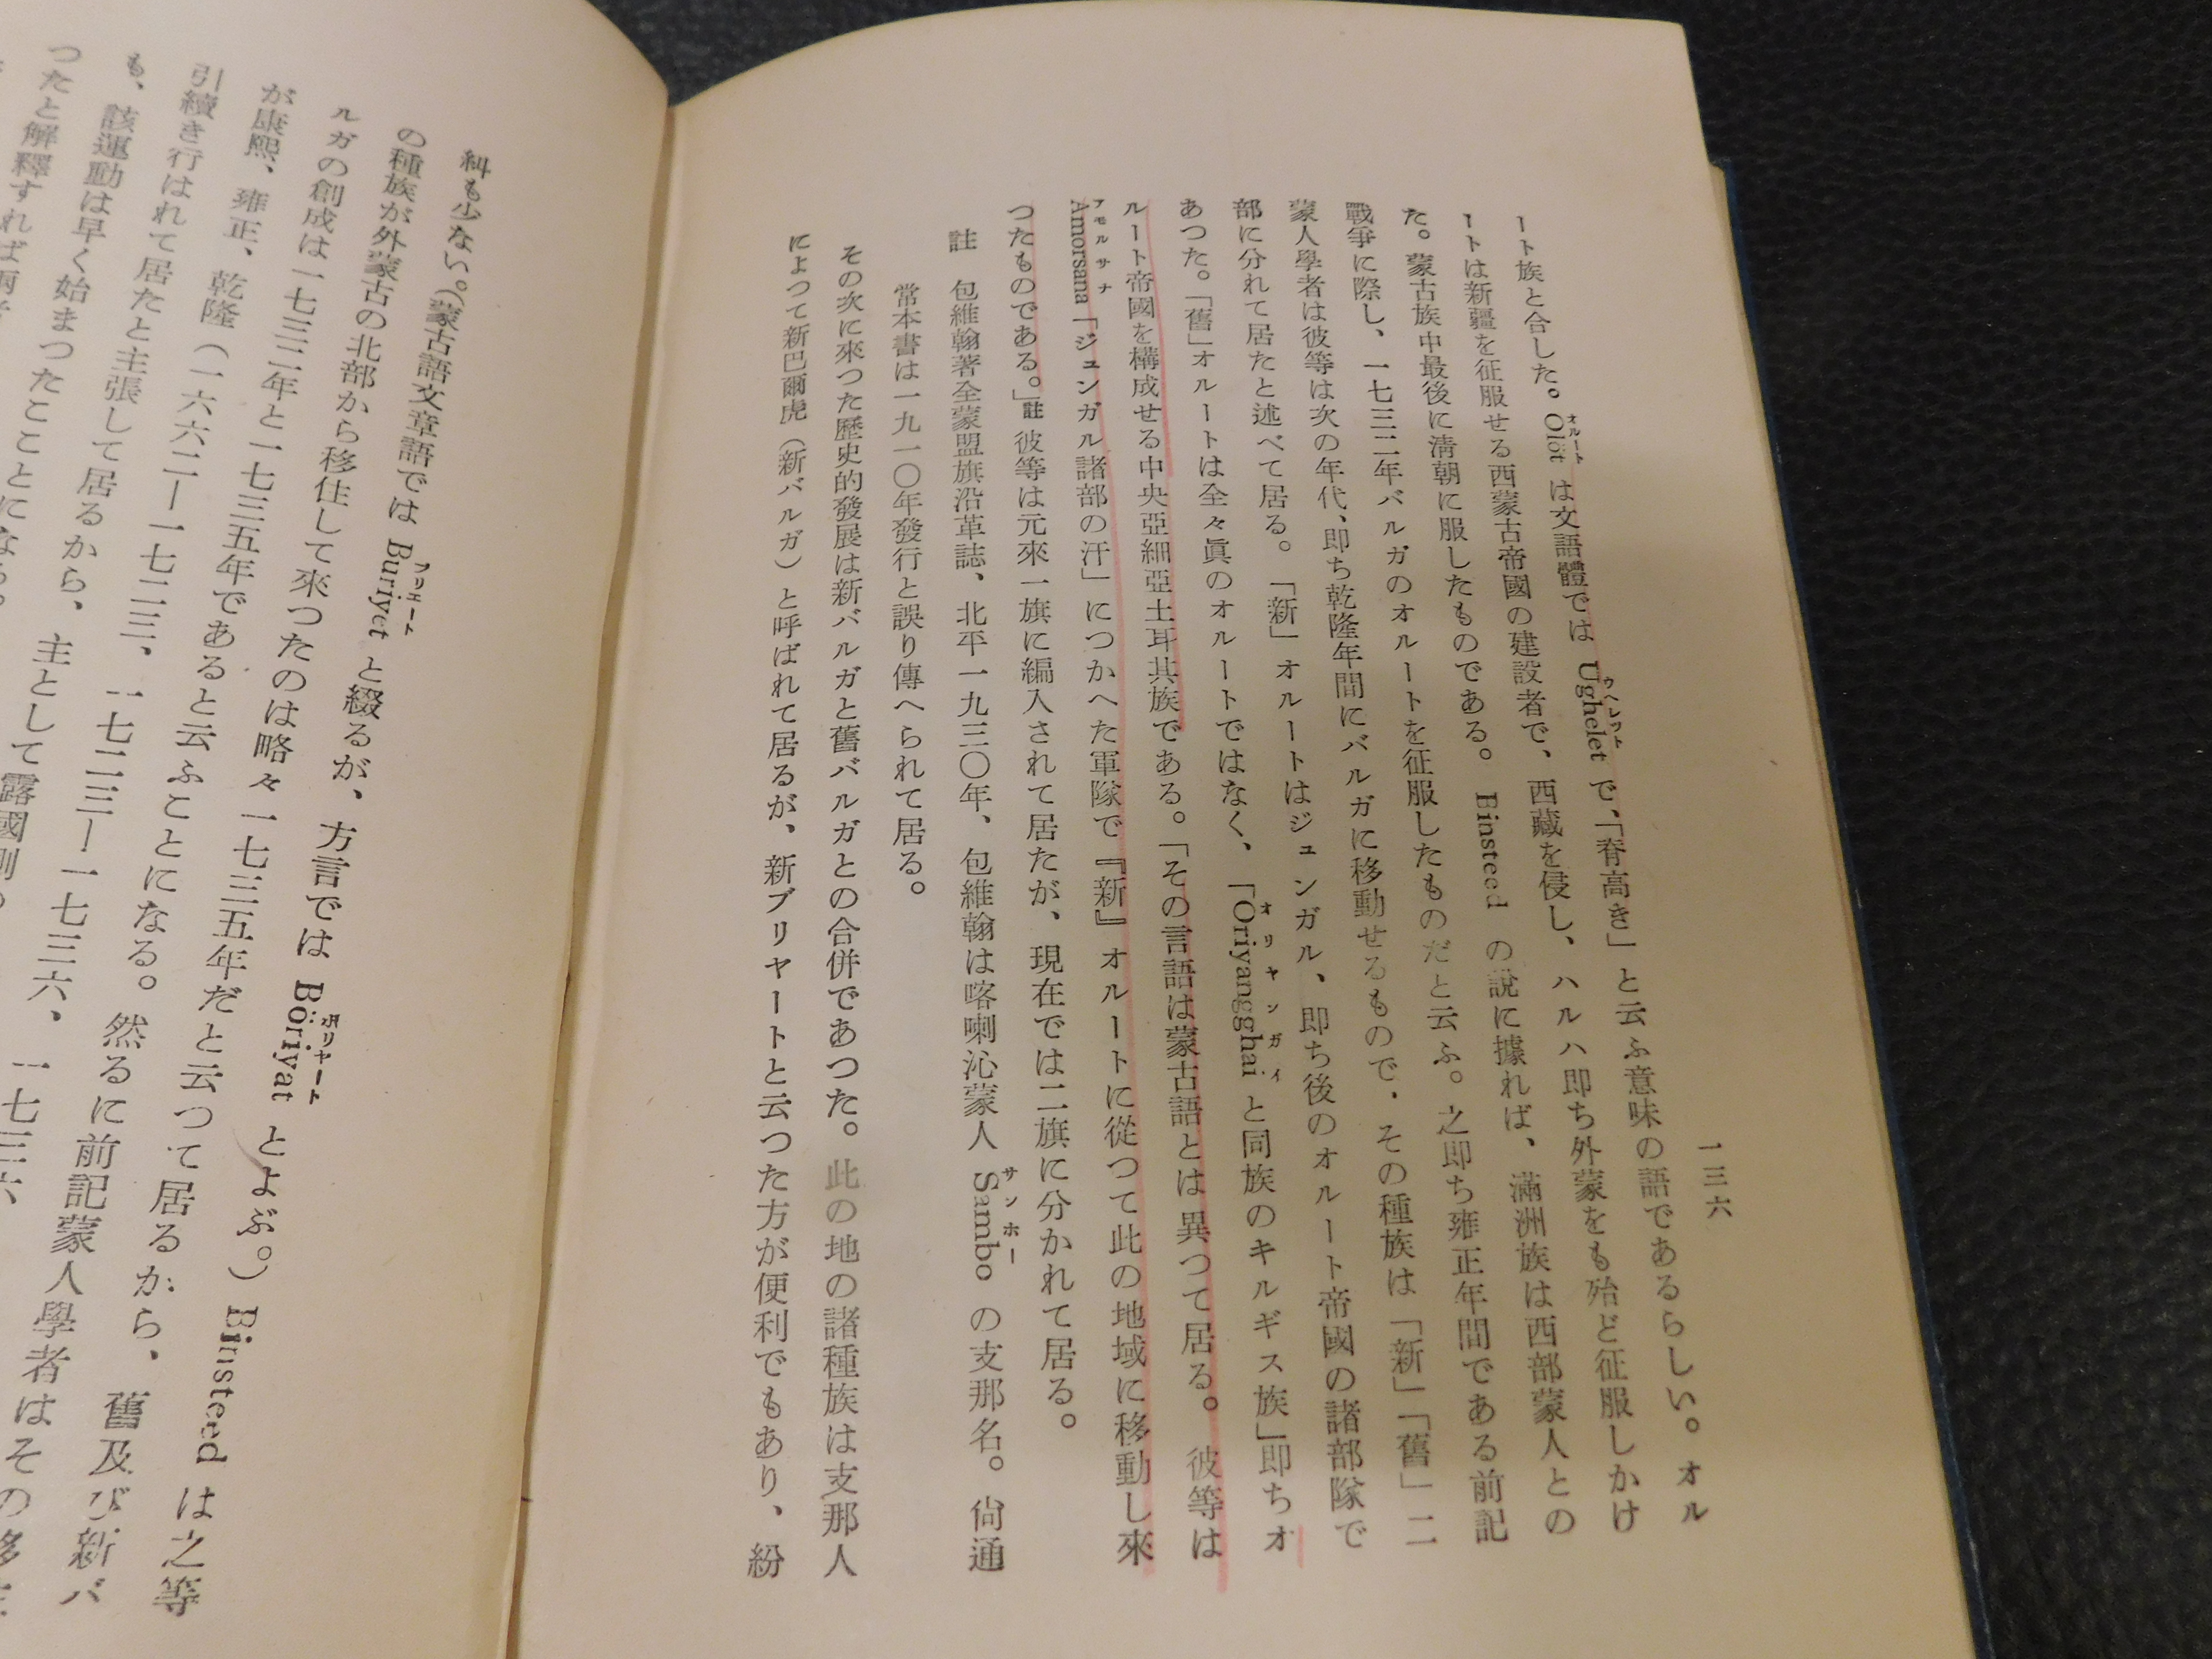 一三六
ート族と合した。Ölöt は文語體では Ughelet で、「脊高き」と云ふ意味の語であるらしい。オル
オルート
ウヘレット
ートは新疆を征服せる西蒙古帝國の建設者で、西藏を侵し、ハルハ即ち外蒙をも殆ど征服しかけ
た。蒙古族中最後に淸朝に服したものである。Binsteed の說に據れば、滿洲族は西部蒙人との
戰爭に際し、一七三二年バルガのオルートを征服したものだと云ふ。之即ち雍正年間である前記
蒙人學者は彼等は次の年代、即ち乾隆年間にバルガに移動せるもので、その種族は「新」「舊」二
部に分れて居たと述べて居る。「新」オルートはジュンガル、即ち後のオルート帝國の諸部隊で
あつた。「舊」オルートは全々眞のオルートではなく、「Oriyangghai と同族のキルギス族」即ちオ
オリヤンガイ
ルート帝國を構成せる中央亞細亞土耳其族である。「その言語は蒙古語とは異つて居る。彼等は
Amorsana「ジュンガル諸部の汗」につかへた軍隊で『新』オルートに從つて此の地域に移動し來
アモルサナ
つたものである。」註 彼等は元來一旗に編入されて居たが、現在では二旗に分かれて居る。
註 包維翰著全蒙盟旗沿革誌、北平一九三〇年、包維翰は喀喇沁蒙人 Sambo の支那名。尙通
サンホー
常本書は一九一〇年發行と誤り傳へられて居る。
その次に來つた歷史的發展は新バルガと舊バルガとの合併であつた。此の地の諸種族は支那人
によつて新巴爾虎(新バルガ)と呼ばれて居るが、新ブリヤートと云つた方が便利でもあり、紛
糾も少ない。(蒙古語文章語では Buriyet と綴るが、方言では Böriyat とよぶ。) Binsteed は之等
ブリエート
ボリヤート
の種族が外蒙古の北部から移住して來つたのは略々一七三五年だと云つて居るから、舊及び新バ
ルガの創成は一七三二年と一七三五年であると云ふことになる。然るに前記蒙人學者はその移住
が康熙、雍正、乾隆(一六六二—一七二三、一七二三—一七三六、一七三六
引續き行はれて居たと主張して居るから、主として露國側の
も、該運動は早く始まつたことになる。
つたと解釋すれば兩者